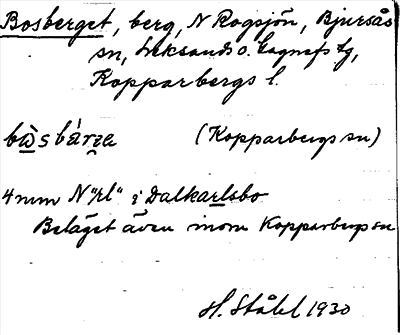 Bosberget, berg, N Rogsjön, Bjursås
sn, Leksands o. Gagnefs tg,
Kopparbergs l.
(Kopparbergs sn)
4 mm N "rl" i Dalkarlsbo
Beläget även inom Kopparbergs sn
H. Ståhl 1930